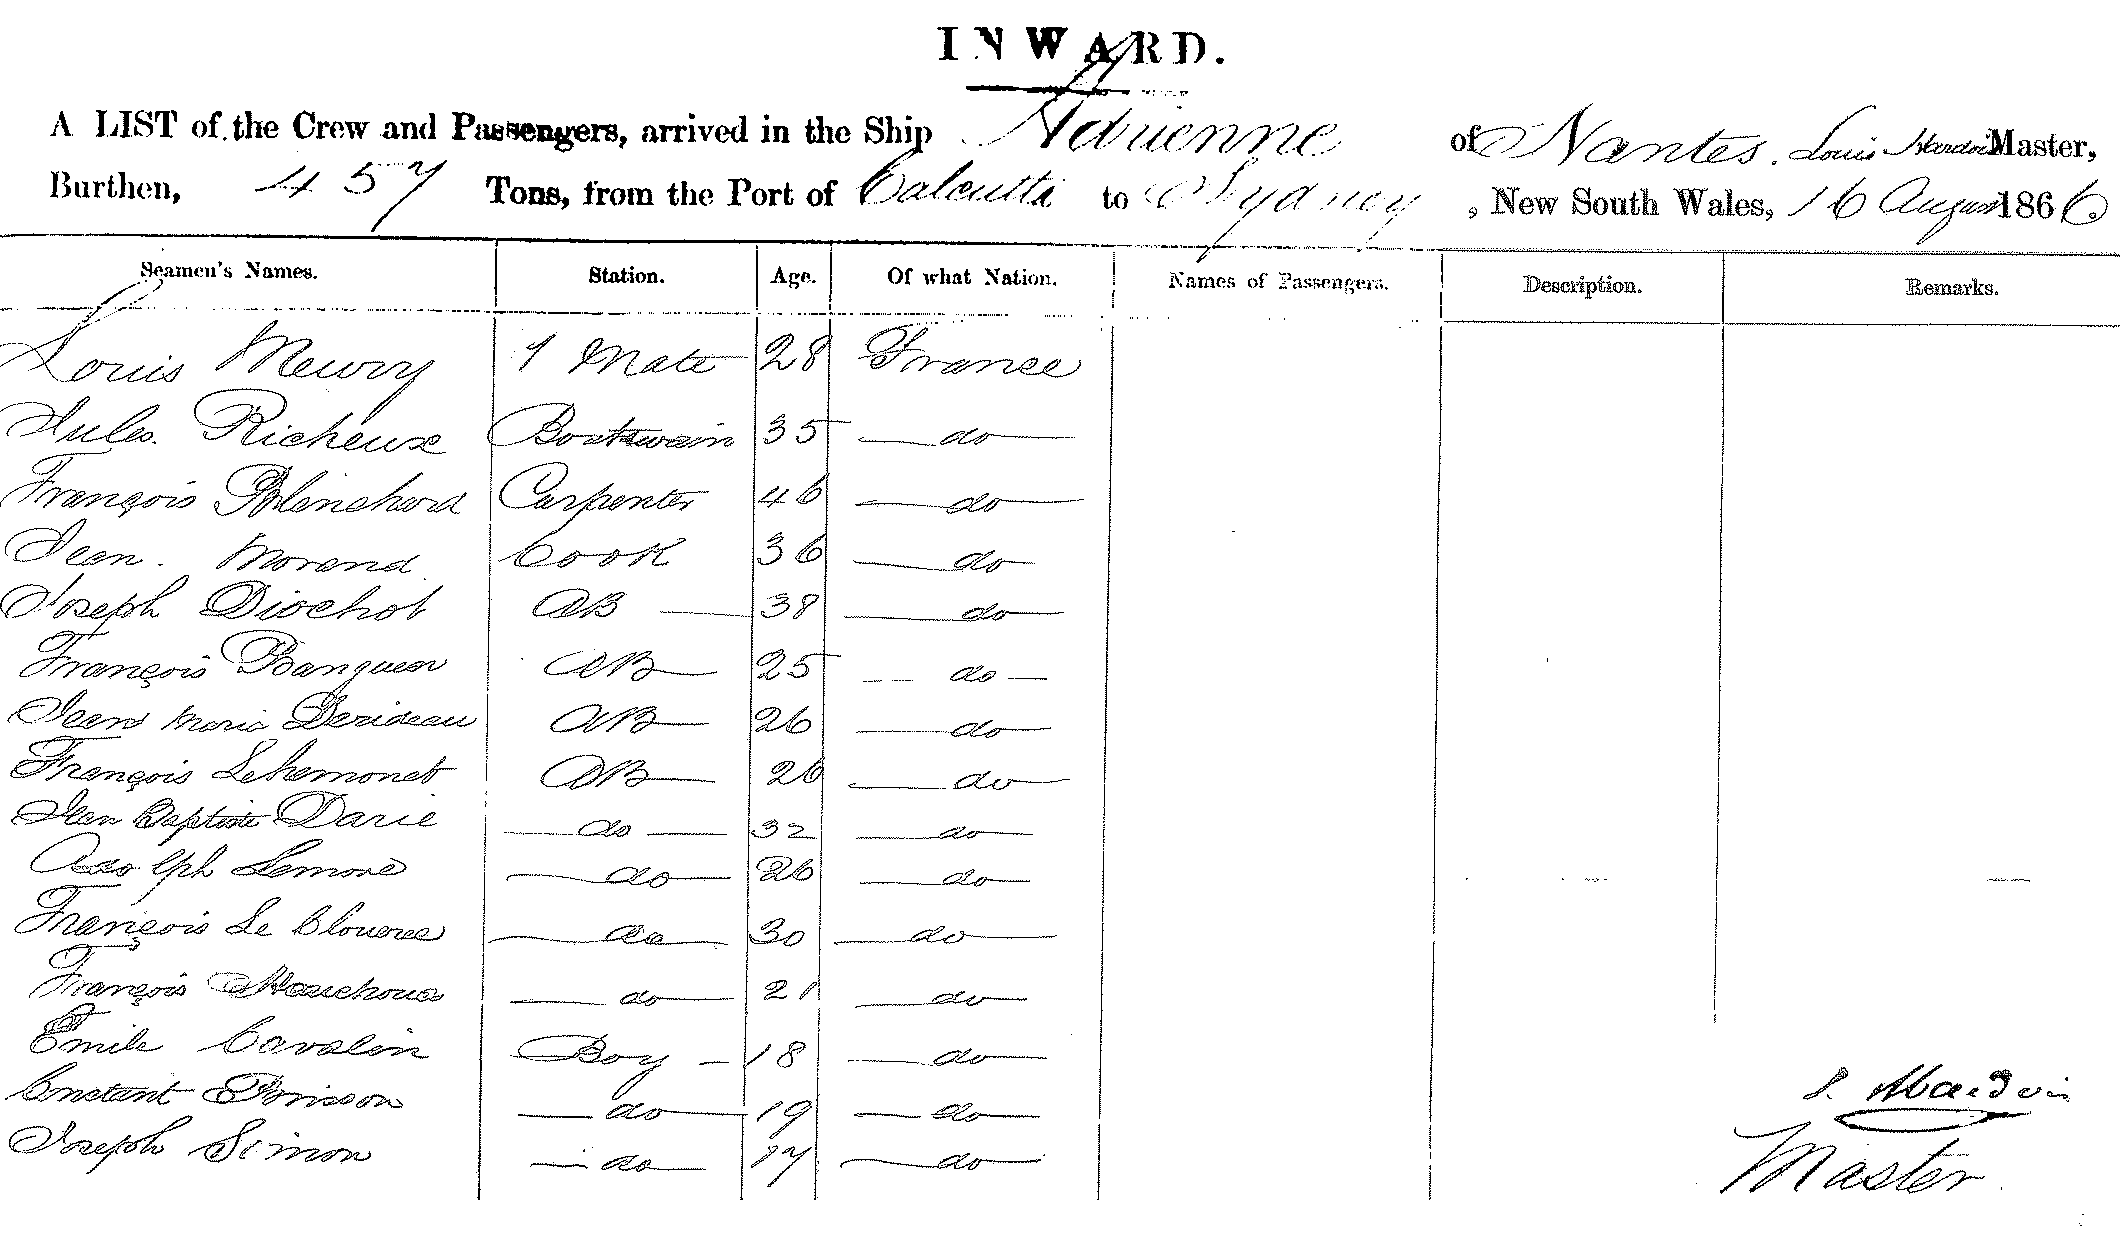 INWARD.
A LIST of the Crew and Passengers, arrived in the Ship Adrienne of Nantes. Louis Hardouin Master,
Burthen, 457 Tons, from the Port of Calcutta to Sydney, New South Wales, 16 August 1866
Seamen's Names. Station. Age. Of what Nation. Names of Passengers. Description. Remarks.
Louis Meury 1 Mate 28 France
Jules Richeux Boatswain 35 do
François Blinchard Carpenter 46 do
Jean Morand Cook 36 do
Joseph Diochot AB 38 do
François AB 25 do
Jean Marie Derideau AB 26 do
François Lehemonet AB 26 do
Jean Baptiste Darie do 32 do
Adolph Lemore do 26 do
François Le do 30 do
François do 21 do
Emile Cavalin Boy 18 do
Constant do 19 do
Joseph Simon do 17 do
Hardouin
Master